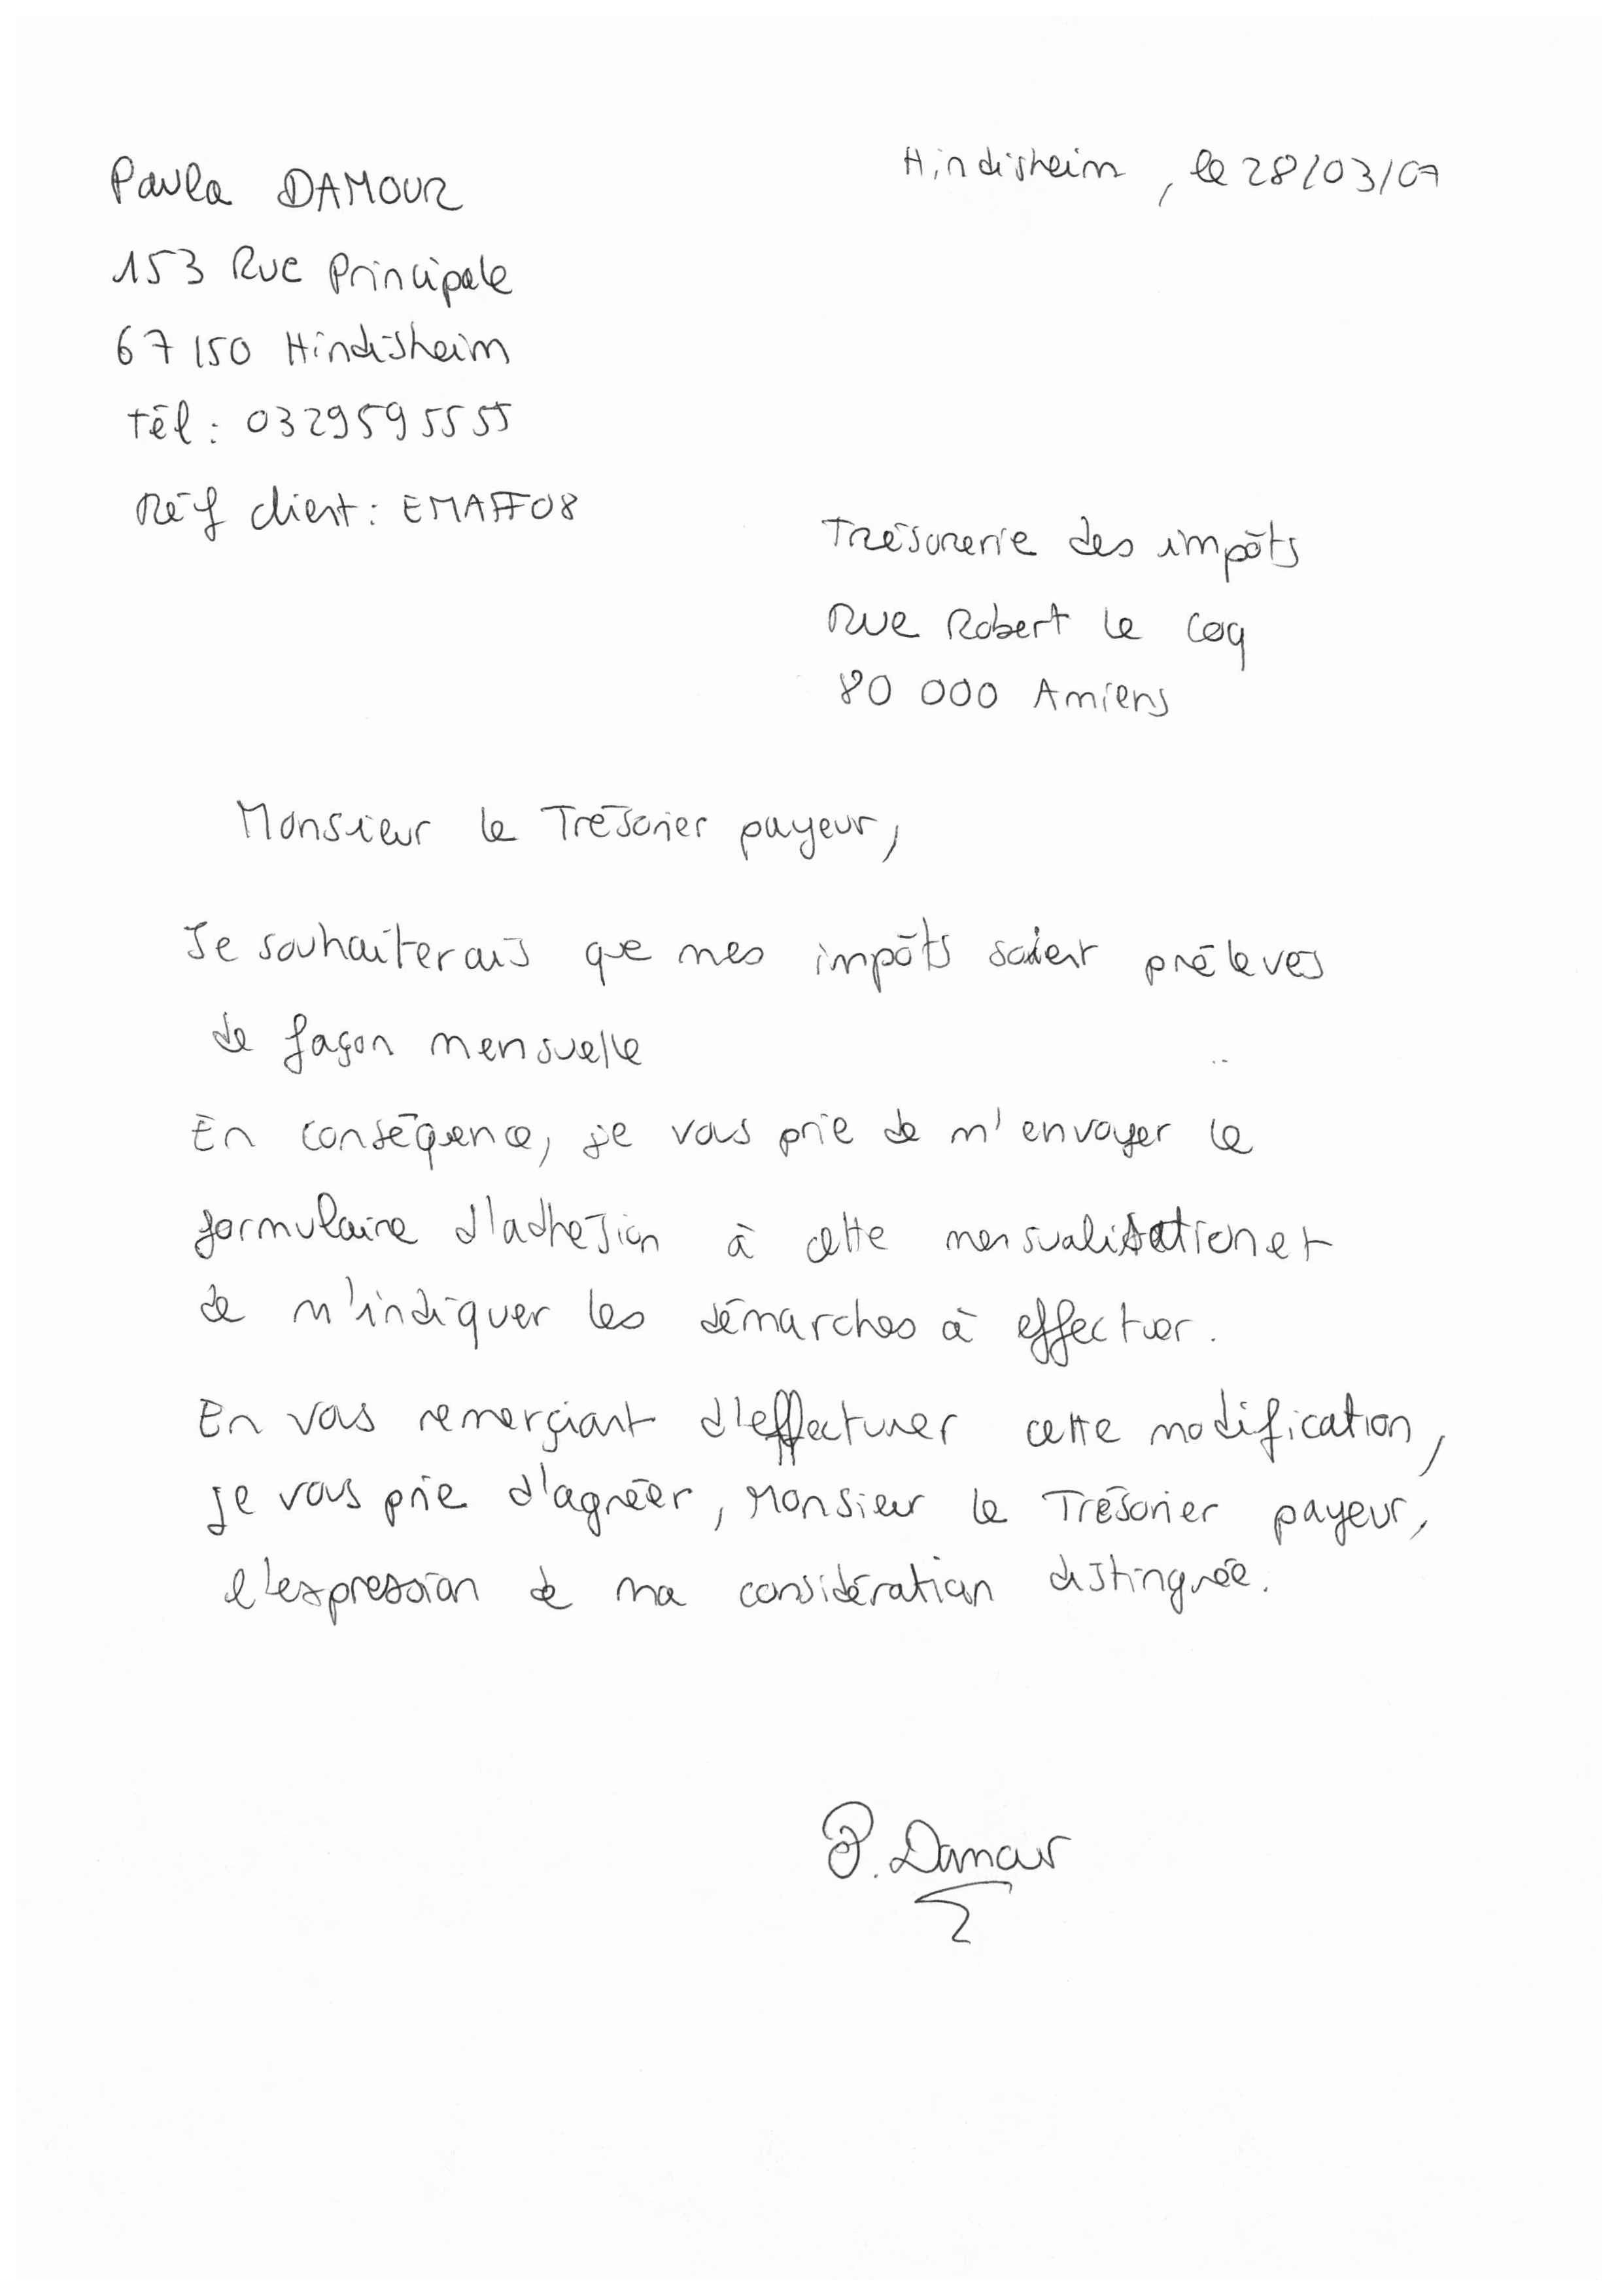 Paula DAMOUR
153 Rue Principale
67150 Hindisheim
tél : 0329595555
Réf client : EMAFF08
Hindisheim, le 28/03/07
Trésorerie des impôts
Rue Robert le Coq
80 000 Amiens
Monsieur le Trésorier payeur,
Je souhaiterais que mes impôts soient prélevés
de façon mensuelle
En conséquence, je vous prie de m'envoyer le
formulaire d'adhésion à cette mensualisation et
de m'indiquer les démarches à effectuer.
En vous remerçiant d'effectuer cette modification,
je vous prie d'agréer, Monsieur le Trésorier payeur,
l'expression de ma considération distinguée.
P. Damour